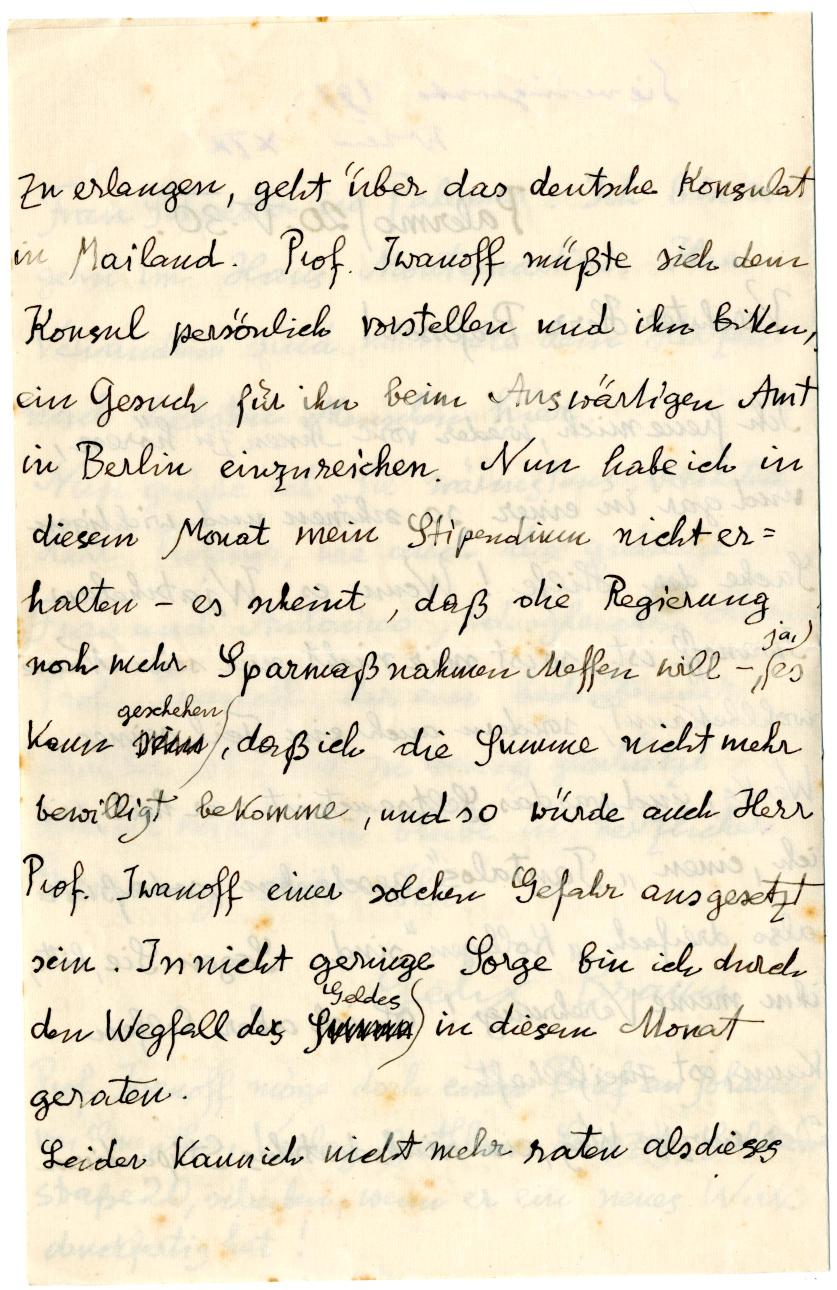 zu erlangen, geht über das deutsche Konsulat
in Mailand. Prof. Iwanoff müßte sich dem
Konsul persönlich vorstellen und ihn bitten,
ein Gesuch für ihn beim Auswärtigen Amt
in Berlin einzureichen. Nun habe ich in
diesem Monat mein Stipendium nicht er=
halten – es scheint, daß die Regierung
noch mehr Sparmaßnahmen treffen will –, ja, es
kann geschehen, daß ich die Summe nicht mehr
bewilligt bekomme, und so würde auch Herr
Prof. Iwanoff einer solchen Gefahr ausgesetzt
sein. In nicht geringe Sorge bin ich durch
den Wegfall des Geldes in diesem Monat
geraten.
Leider kann ich nicht mehr raten als dieses